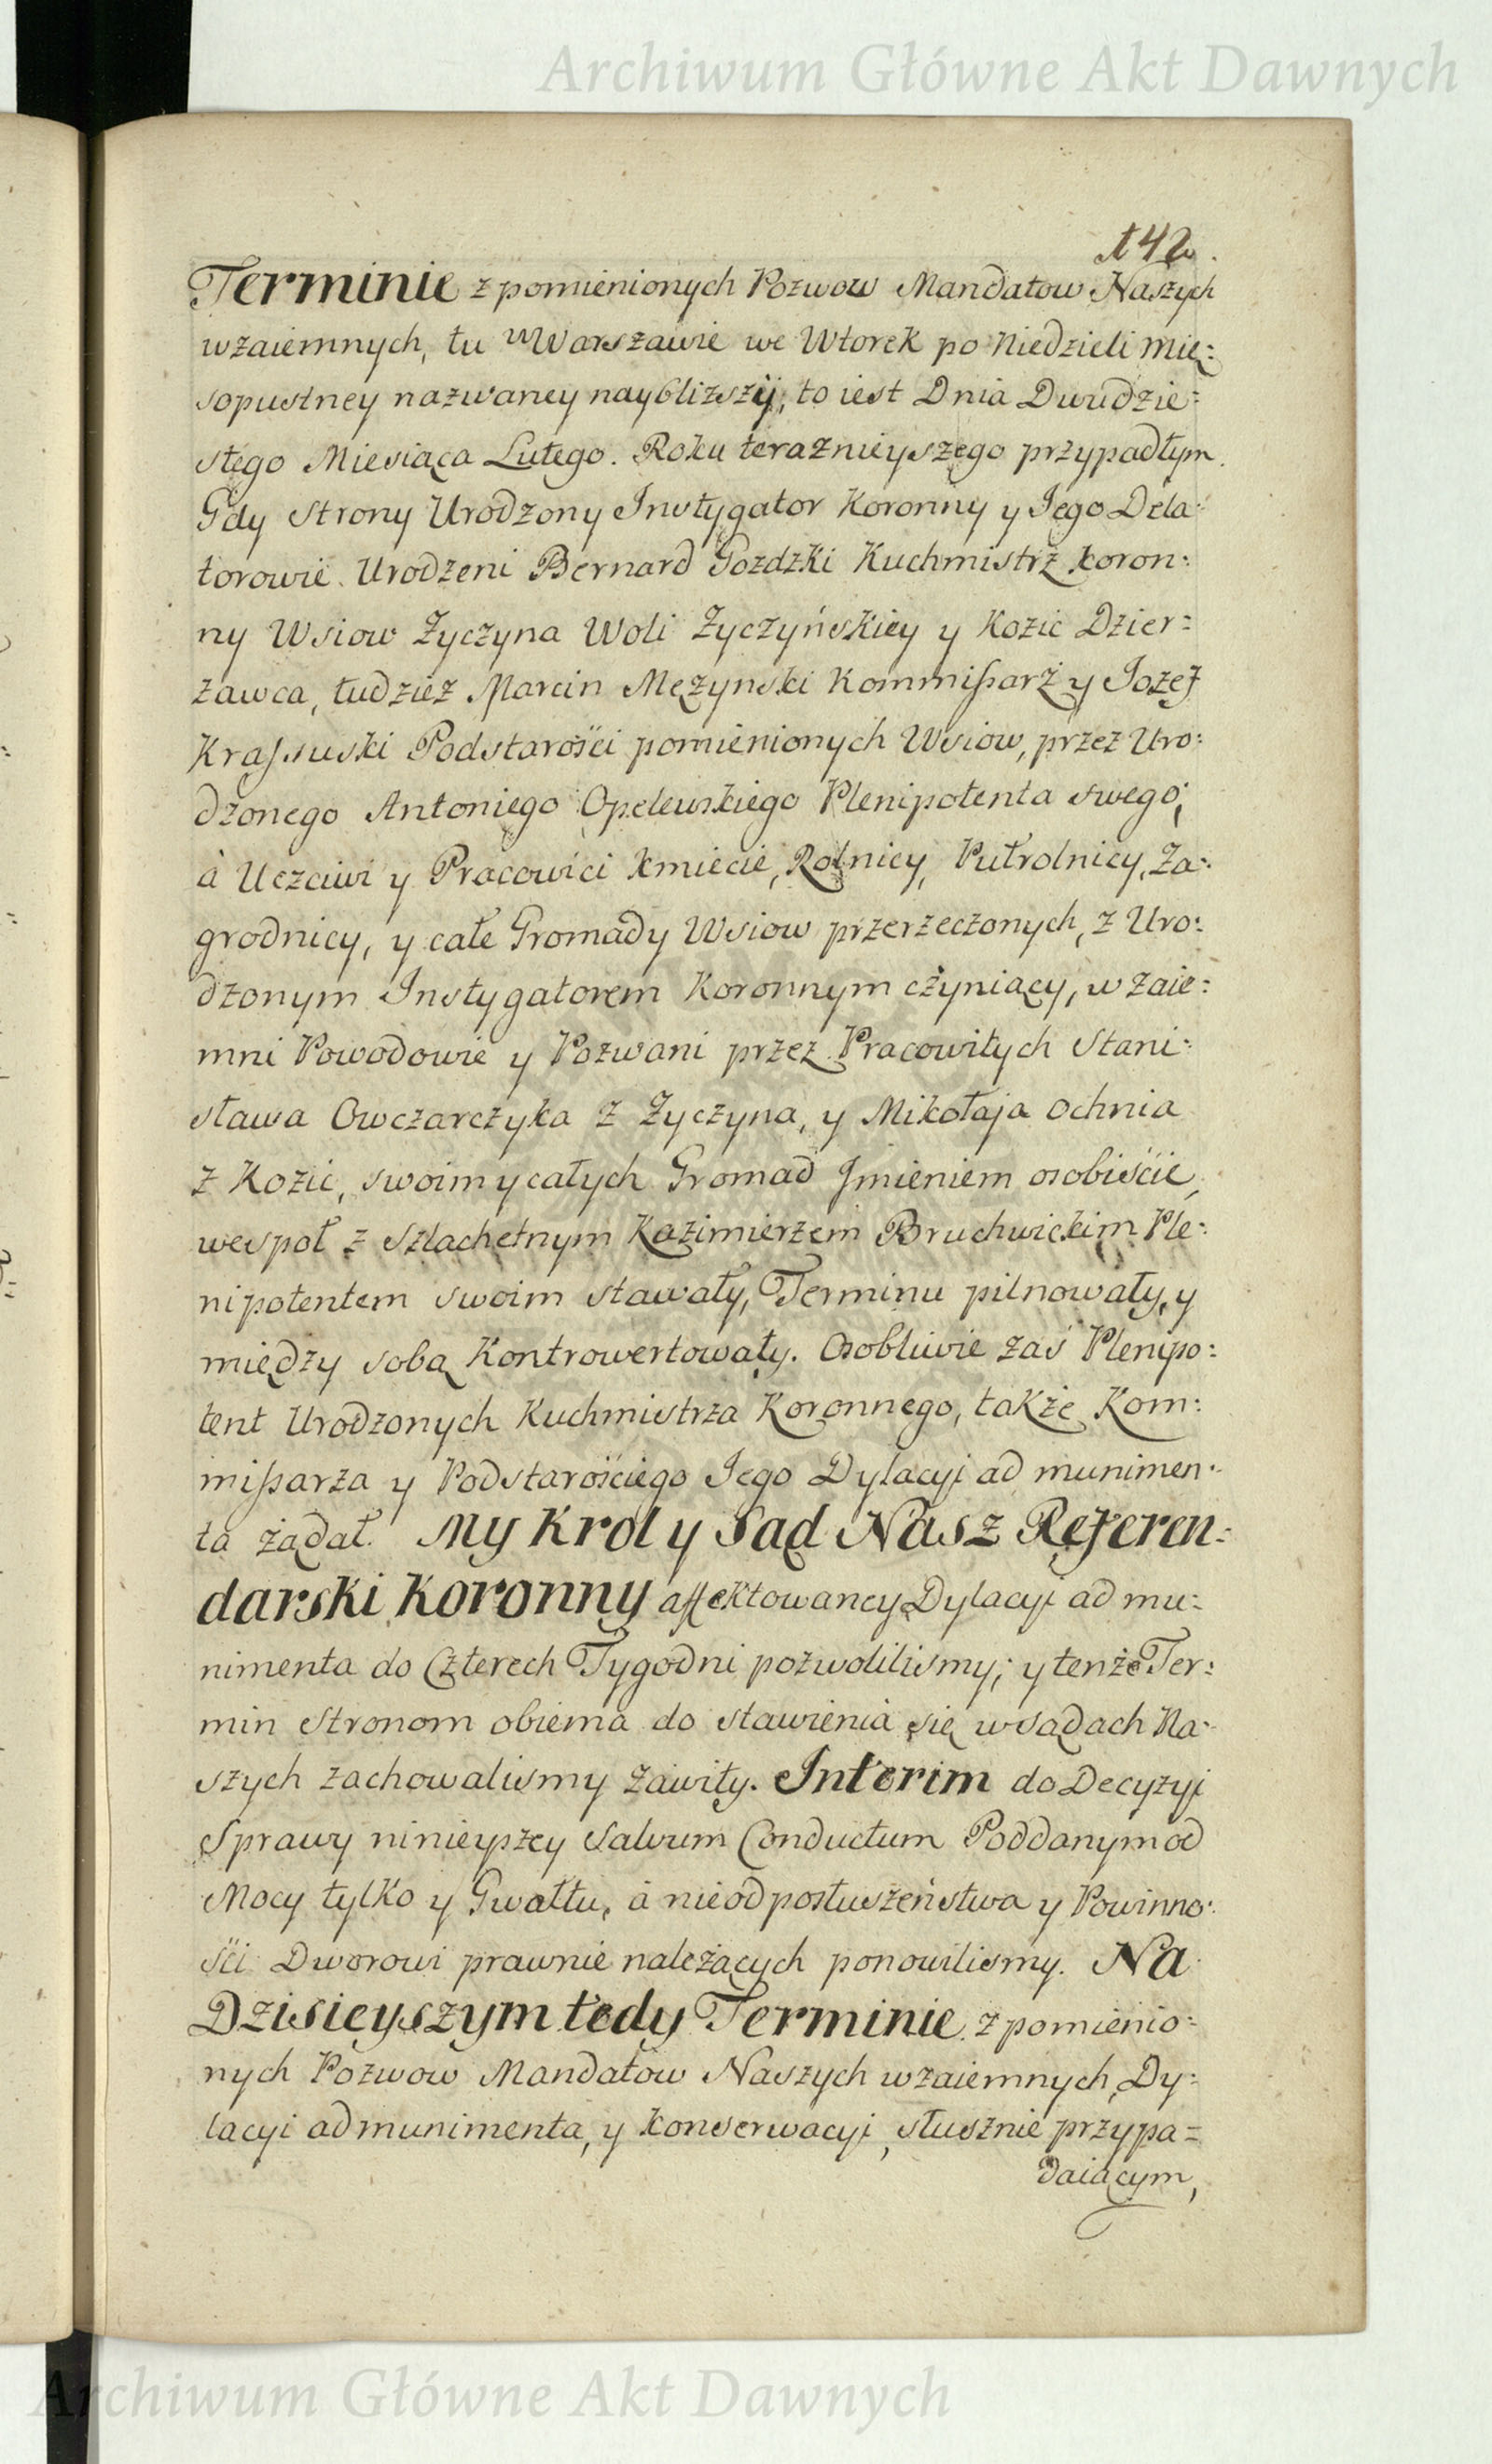 Archiwum Główne Akt Dawnych
142.
Terminie z pomienionych Pozwow Mandatow Naszych
wzaiemnych, tu w Warszawie we Wtorek po Niedzieli Mię:
sopustney nazwaney nayblizszÿ, to iest Dnia Dwudzie:
stego Miesiąca Lutego. Roku teraznieyszego przypadłym.
Gdy Strony Urodzony Instygator Koronny y Jego Dela:
torowie Urodzeni Bernard Gozdzki Kuchmistrz koron:
ny Wsiow Zyczyna Woli Zyczyńskiey y Kozic Dzier:
zawca, tudziez Marcin Męzynski Kommissarz y Jozef
Krassuski Podstarości pomienionych Wsiow, przez Uro:
dzonego Antoniego Opelewskiego Plenipotenta swego;
à Uczciwi y Pracowici kmiecie, Rolnicy, Pułrolnicy, Za:
grodnicy, y całe Gromady Wsiow przerzeczonych, z Uro:
dzonym Instygatorem Koronnym czyniący, wzaie:
mni Powodowie y Pozwani przez Pracowitych Stani:
sława Owczarczyka z Zyczyna, y Mikołaja Ochnia
z Kozic, swoim y całych Gromad Jmieniem osobiście,
wespoł z Szlachetnym Kazimierzem Bruchwickim Ple:
nipotentem swoim stawały, Terminu pilnowały, y
między sobą Kontrowertowały. Osobliwie zaś Plenipo:
tent Urodzonych Kuchmistrza Koronnego, także Kom:
missarza y Podstarościego Jego Dylacyi ad munimen:
ta żądał. My Krol y Sąd Nasz Referen:
darski Koronny affektowaney Dylacyi ad mu:
nimenta do Czterech Tygodni pozwolilismy; y tenże Ter:
min Stronom obiema do stawienia się w sądach Na:
szych zachowalismy zawity. Interim do Decyzyi
Sprawy ninieyszey Salvum Conductum Poddanym od
Mocy tylko y Gwałtu, à nie od posłuszeństwa y Powinno:
ści Dworowi prawnie należących ponowilismy. Na
Dzisieyszym tedy Terminie z pomienio:
nych Pozwow Mandatow Naszych wzaiemnych, Dy:
lacyi ad munimenta, y konserwacyi, słusznie przypa=
daiącym,
Archiwum Główne Akt Dawnych